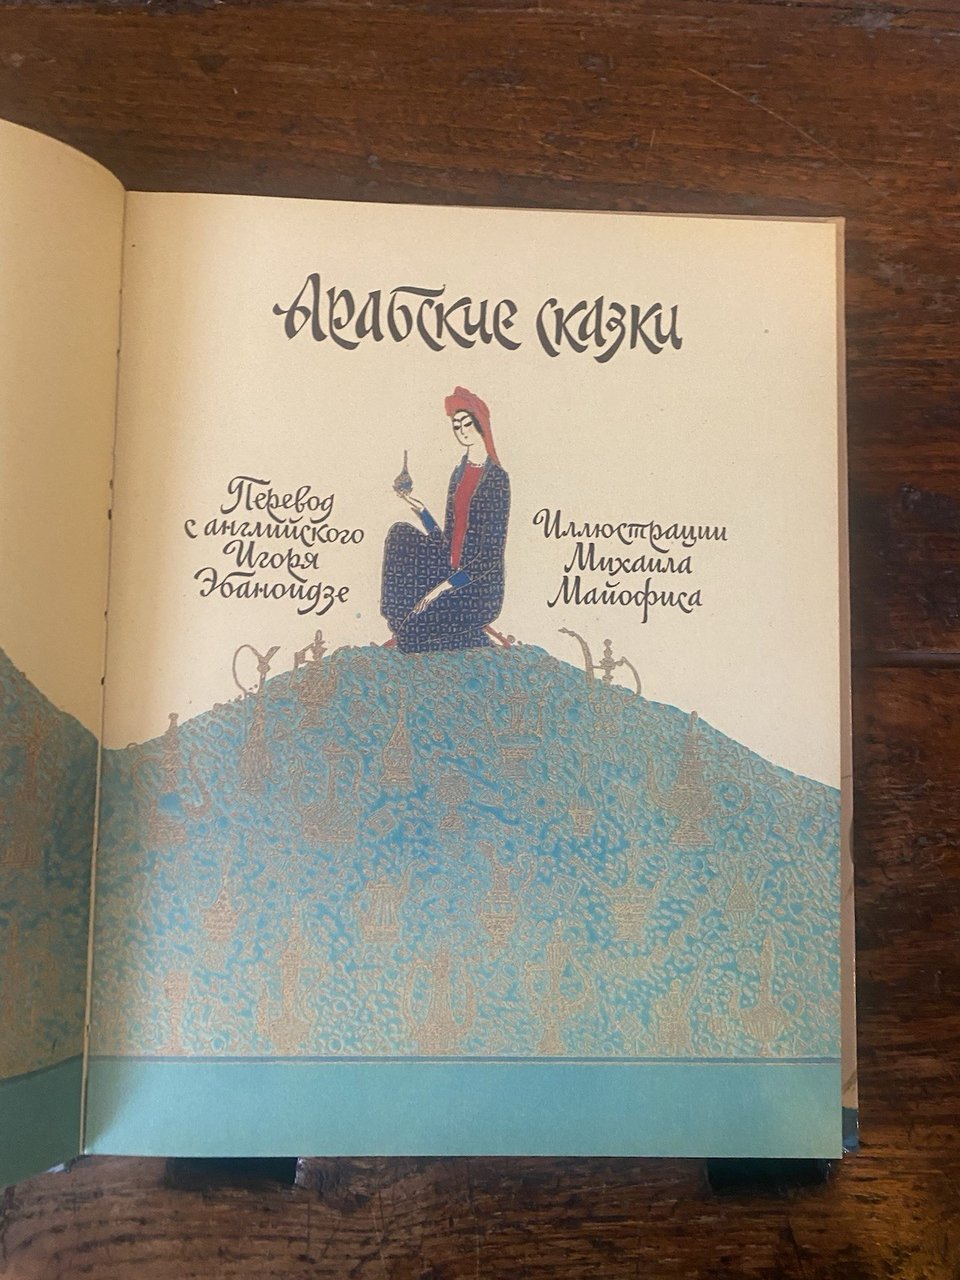 Арабские сказки
Перевод
с английского
Игоря
Эбаноидзе
Иллюстрации
Михаила
Майофиса